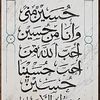 حسين مني
وأنا من حسين
أحب الله من
أحب حسينا
حسين